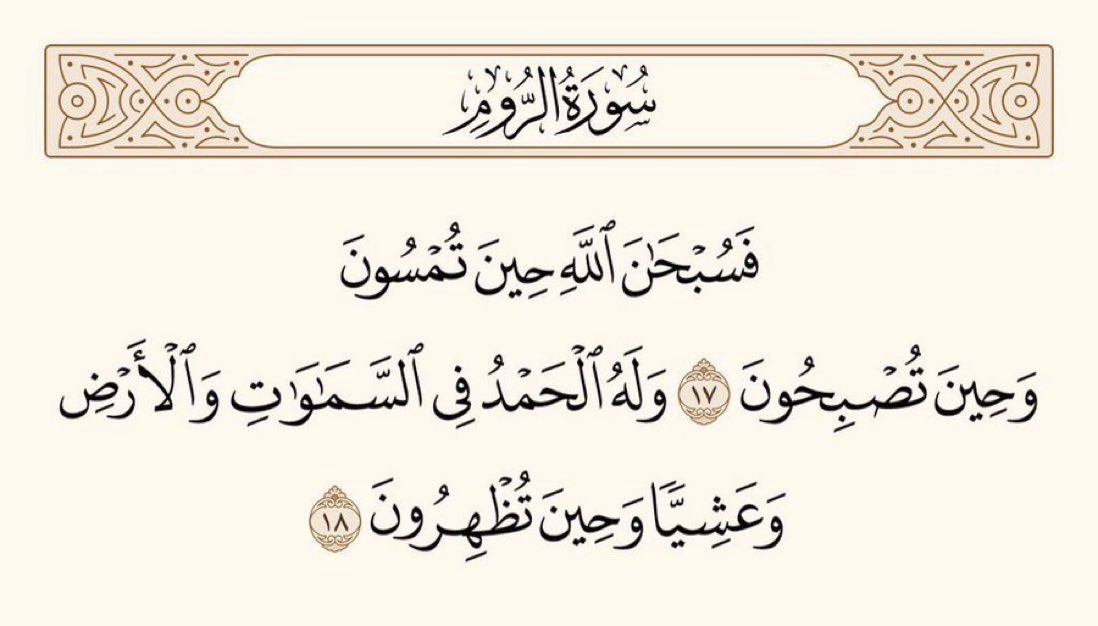 سُورَةُ الرُّومِ
فَسُبْحَٰنَ ٱللَّهِ حِينَ تُمْسُونَ
وَحِينَ تُصْبِحُونَ ١٧ وَلَهُ ٱلْحَمْدُ فِى ٱلسَّمَٰوَٰتِ وَٱلْأَرْضِ
وَعَشِيًّا وَحِينَ تُظْهِرُونَ ١٨